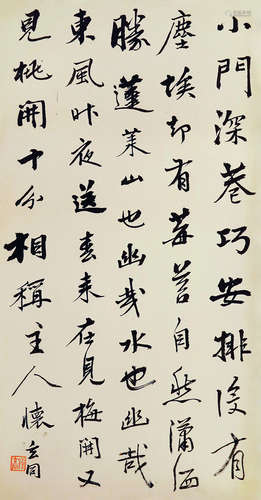 小門深巷巧安排沒有
塵埃却有莓苔自然瀟洒
勝蓬萊山也幽哉水也幽哉
東風昨夜送春来在見梅開又
見桃開十分相稱主人懷
玄同